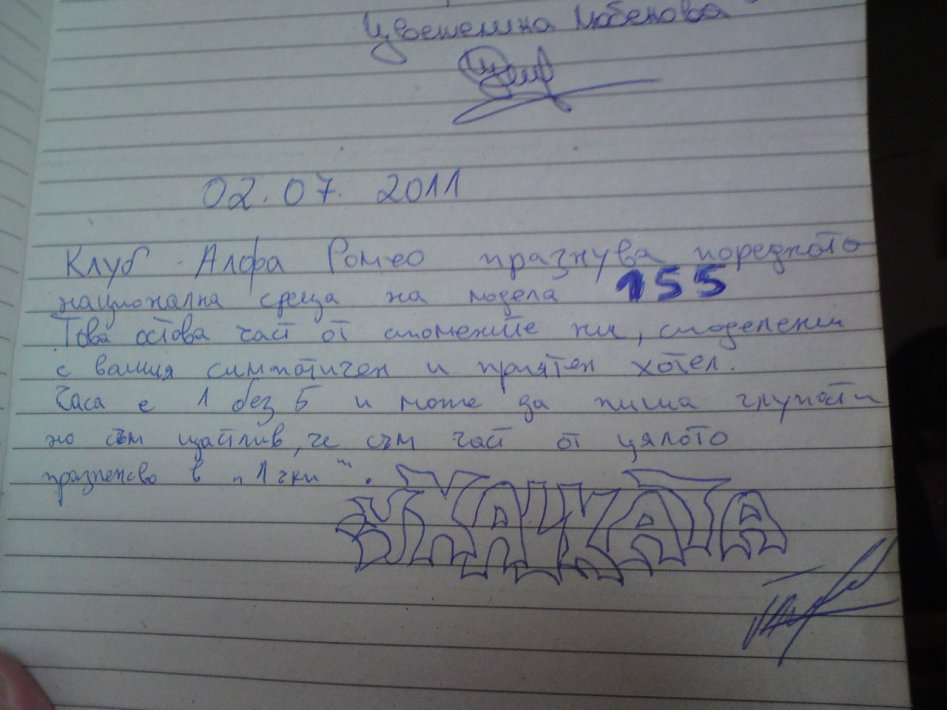 Цветелина
02.07. 2011
Клуб Алфа Ромео празнува поредното
национална среща на модела 155
Това остова част от спомените ни, споделени
с вашия симпатичен и приятен хотел.
Часа е 1 без 5 и може да пиша глупости
но съм щастлив, че съм част от цялото
празненсво в "